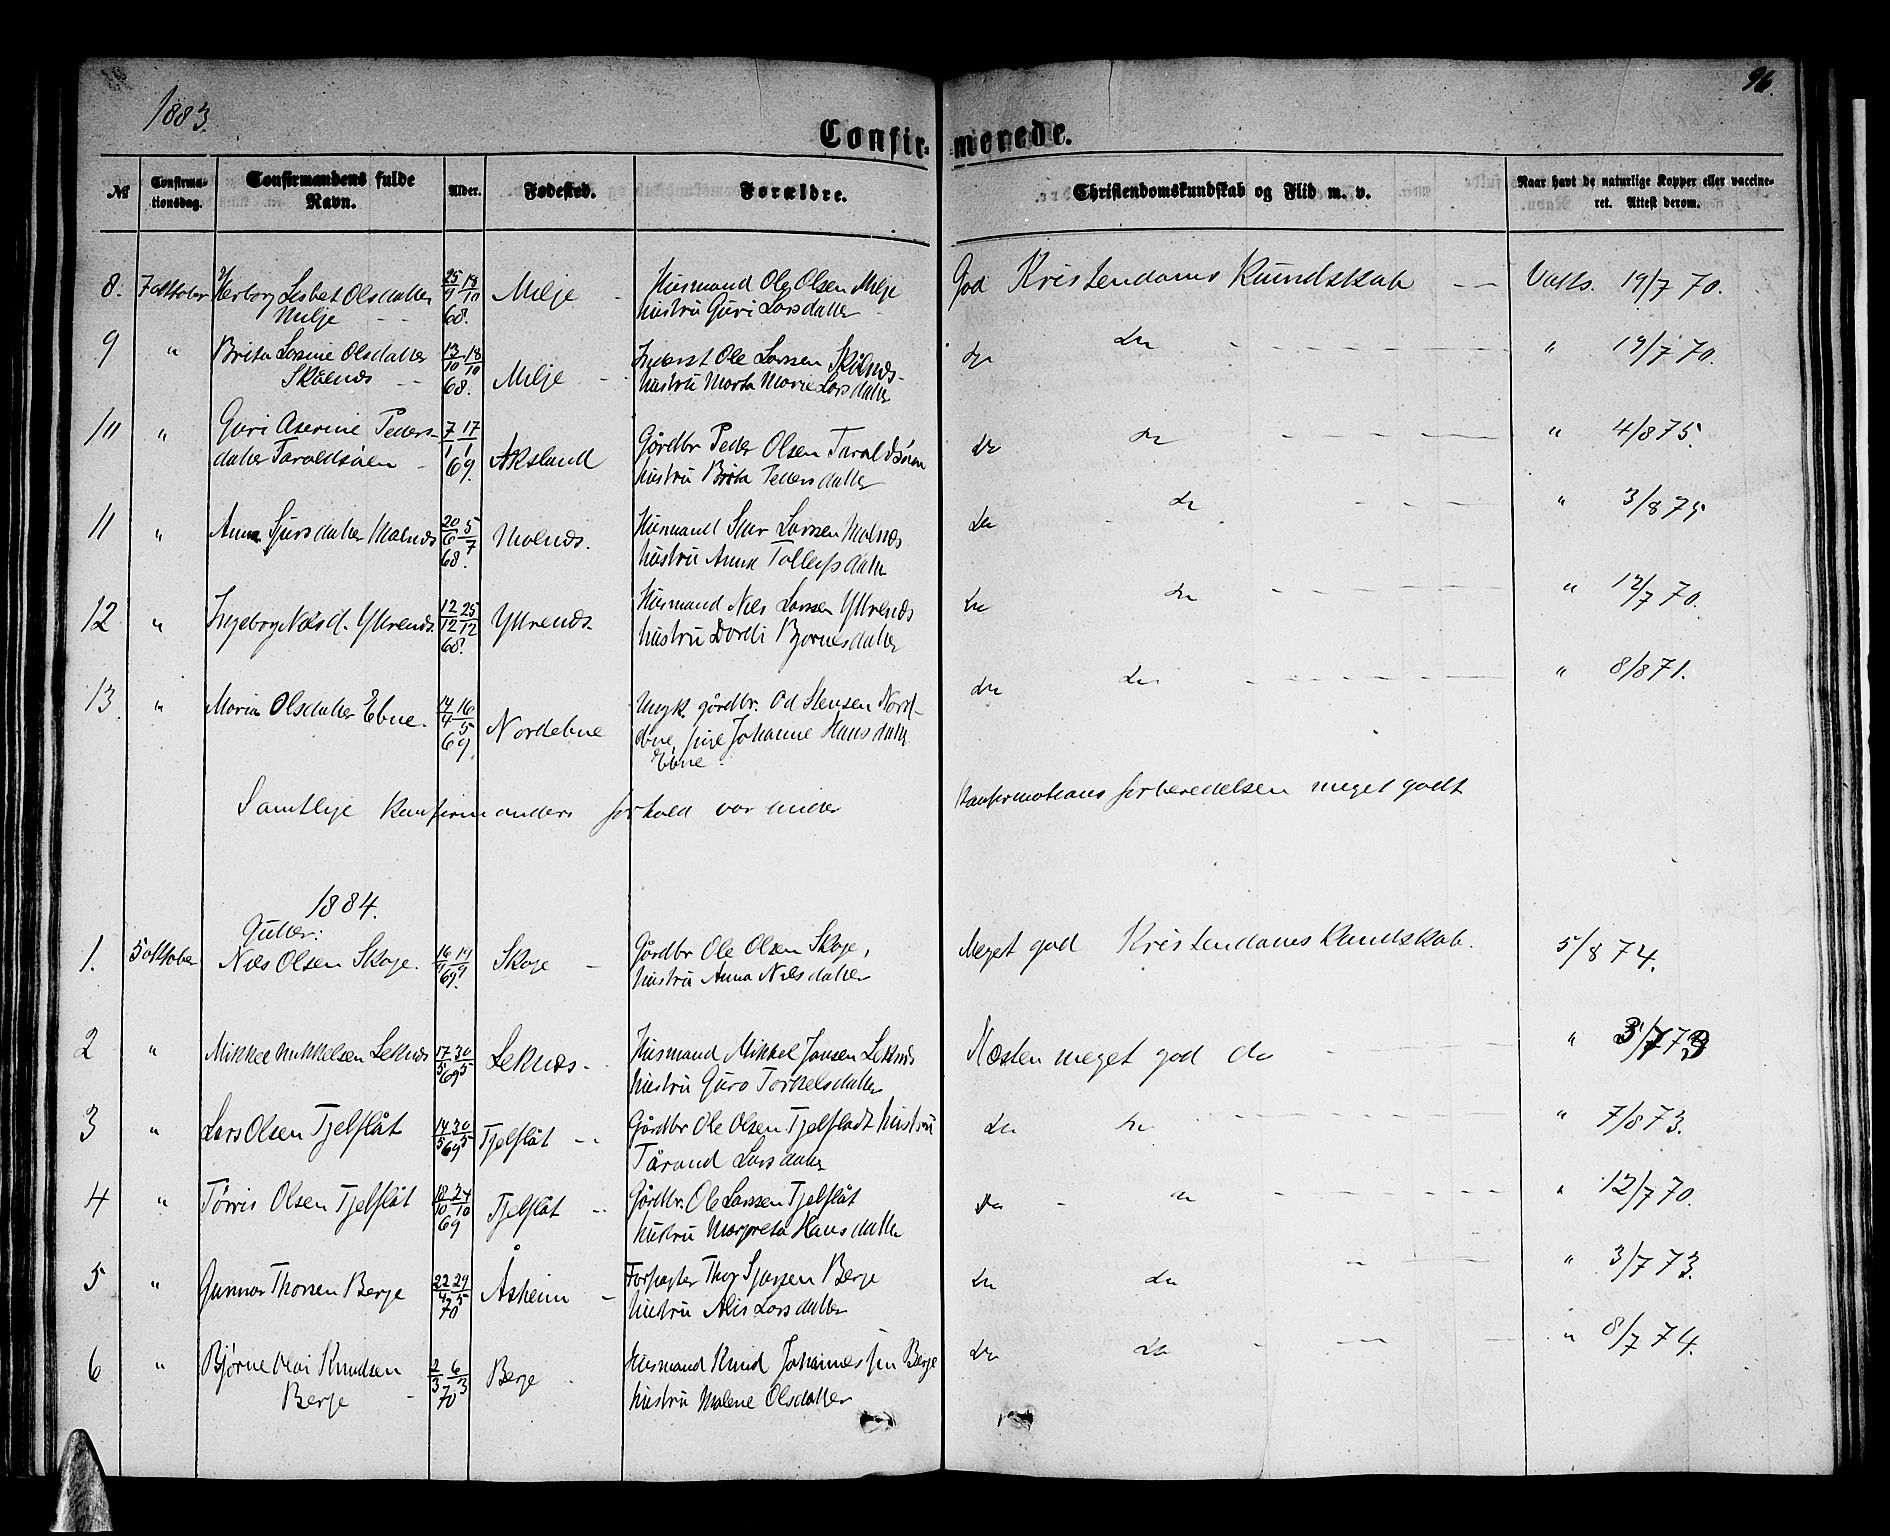 96.
1883.
Confirmerede.
№ Confirmationsdag. Confirmandens fulde Navn. Alder. Fødested. Forældre. Christendomskundskab og Flid m. v. Naar havt de naturlige Kopper eller vaccineret. Attest derom.
8. 7 oktober Herborg Lisbet Olsdatter Milje 25/9 18/10 68. Milje Husmand Ole Olsen Milje hustru Guri Larsdatter God Kristendoms Kundskab Vatts. 19/7 70.
9 " Brita Larsine Olsdatter Skålnæs 13/10 18/10 68. Milje Inderst Ole Larssen Skålnæs hustru Marta Marie Larsdatter do do " 19/7 70.
10 " Guri Aserine Pedersdatter Taraldsøien 7/1 17/1 69. Aksland Gårdbr Peder Olsen Taraldsøien hustru Brita Pedersdatter do do " 4/8 75.
11 " Anna Sjursdatter Malnæs 20/6 5/7 68. Malnæs. Husmand Sjur Larssen Malnæs hustru Anna Tollefsdatter do do " 3/8 75
12 " Ingeborg Nilsd. Ytrenæs. 12/12 25/12 68. Ytrenæs Husmand Nils Larssen Ytrenæs hustru Dordi Bjørnesdatter do do " 12/7 70.
13 " Maria Olsdatter Ebne. 14/4 16/5 69. Nordebne Ungk. gårdbr. Od Stensen Nordebne, pige Johanne Hansdatter Ebne do do " 8/8 71.
Samtlige Konfirmanders forhold var under Konfirmations forberedelsen meget godt
1884.
Gutter:
1. 5 oktober Nils Olsen Skoge. 69. Skoge Gårdbr Ole Olsen Skoge, hustru Anna Nilsdatter Meget god Kristendoms Kundskab. 5/8 74.
2 " Mikkel Mikkelsen Leknæs 17/5 30/5 69 Leknæs Husmand Mikkel Jansen Leknæs hustru Guro Torkelsdatter Næsten meget god do " 3/7 73
3 " Lars Olsen Tjelflåt 14/5 30/5 69 Tjelflåt Gårdbr Ole Olsen Tjelfladt hustru Tårand Larsdatter do do " 7/8 73.
4 " Tørris Olsen Tjelflåt 18/10 24/10 69 Tjelflåt Gårdbr. Ole Larssen Tjelflåt hustru Margreta Hansdatter do do " 12/7 70.
5 " Gunnar Thorsen Berge 22/4 29/5 70 Åsheim Forpagter Thor Sjursen Berge hustru Alis Larsdatter do do " 3/7 73.
6 " Bjørne Olai Knudsen Berge 2/3 6/3 70 Berge Husmand Knud Johannessen Berge hustru Malene Olsdatter do do " 8/7 74.